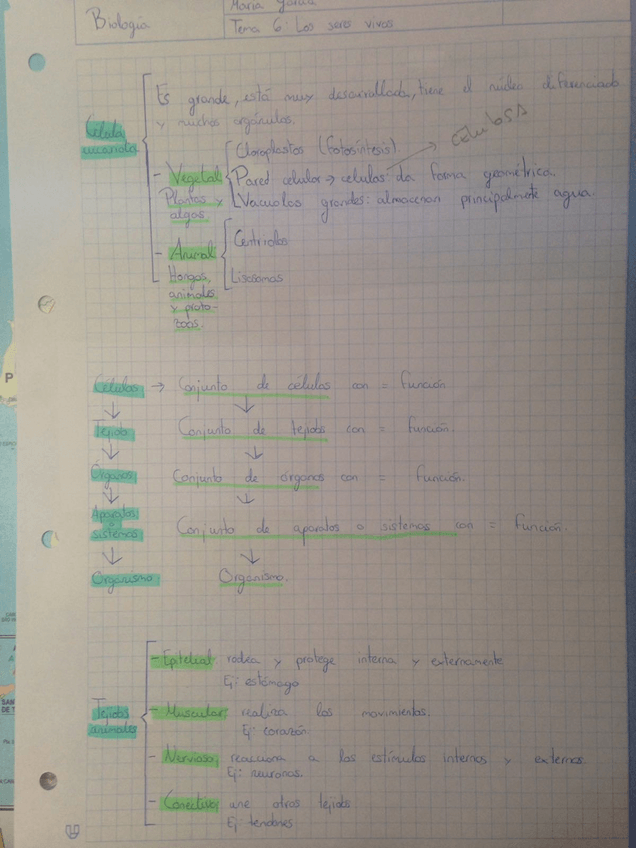 Biología
María García
Tema 6: Los seres vivos
Célula eucariota
Es grande, está muy desarrollada, tiene el núcleo diferenciado
y muchos orgánulos.
- Vegetal
Plantas y
algas
Cloroplastos (fotosíntesis)
Pared celular → celulas: da forma geométrica.
CELULOSA
Vacuolas grandes: almacenan principalmente agua.
- Animal
Hongos,
animales
y proto-
zoos.
Centriolos
Lisosomas
Células → Conjunto de células con = función
↓ ↓
Tejido Conjunto de tejidos con = función.
↓ ↓
Órganos Conjunto de órganos con = función.
↓ ↓
Aparatos o
sistemas Conjunto de aparatos o sistemas con = función.
↓ ↓
Organismo Organismo.
Tejidos
animales
- Epitelial: rodea y protege interna y externamente
Ej: estómago
- Muscular: realiza los movimientos.
Ej: corazón
- Nervioso: reacciona a los estímulos internos y externos.
Ej: neuronas.
- Conectivo: une otros tejidos
Ej: tendones